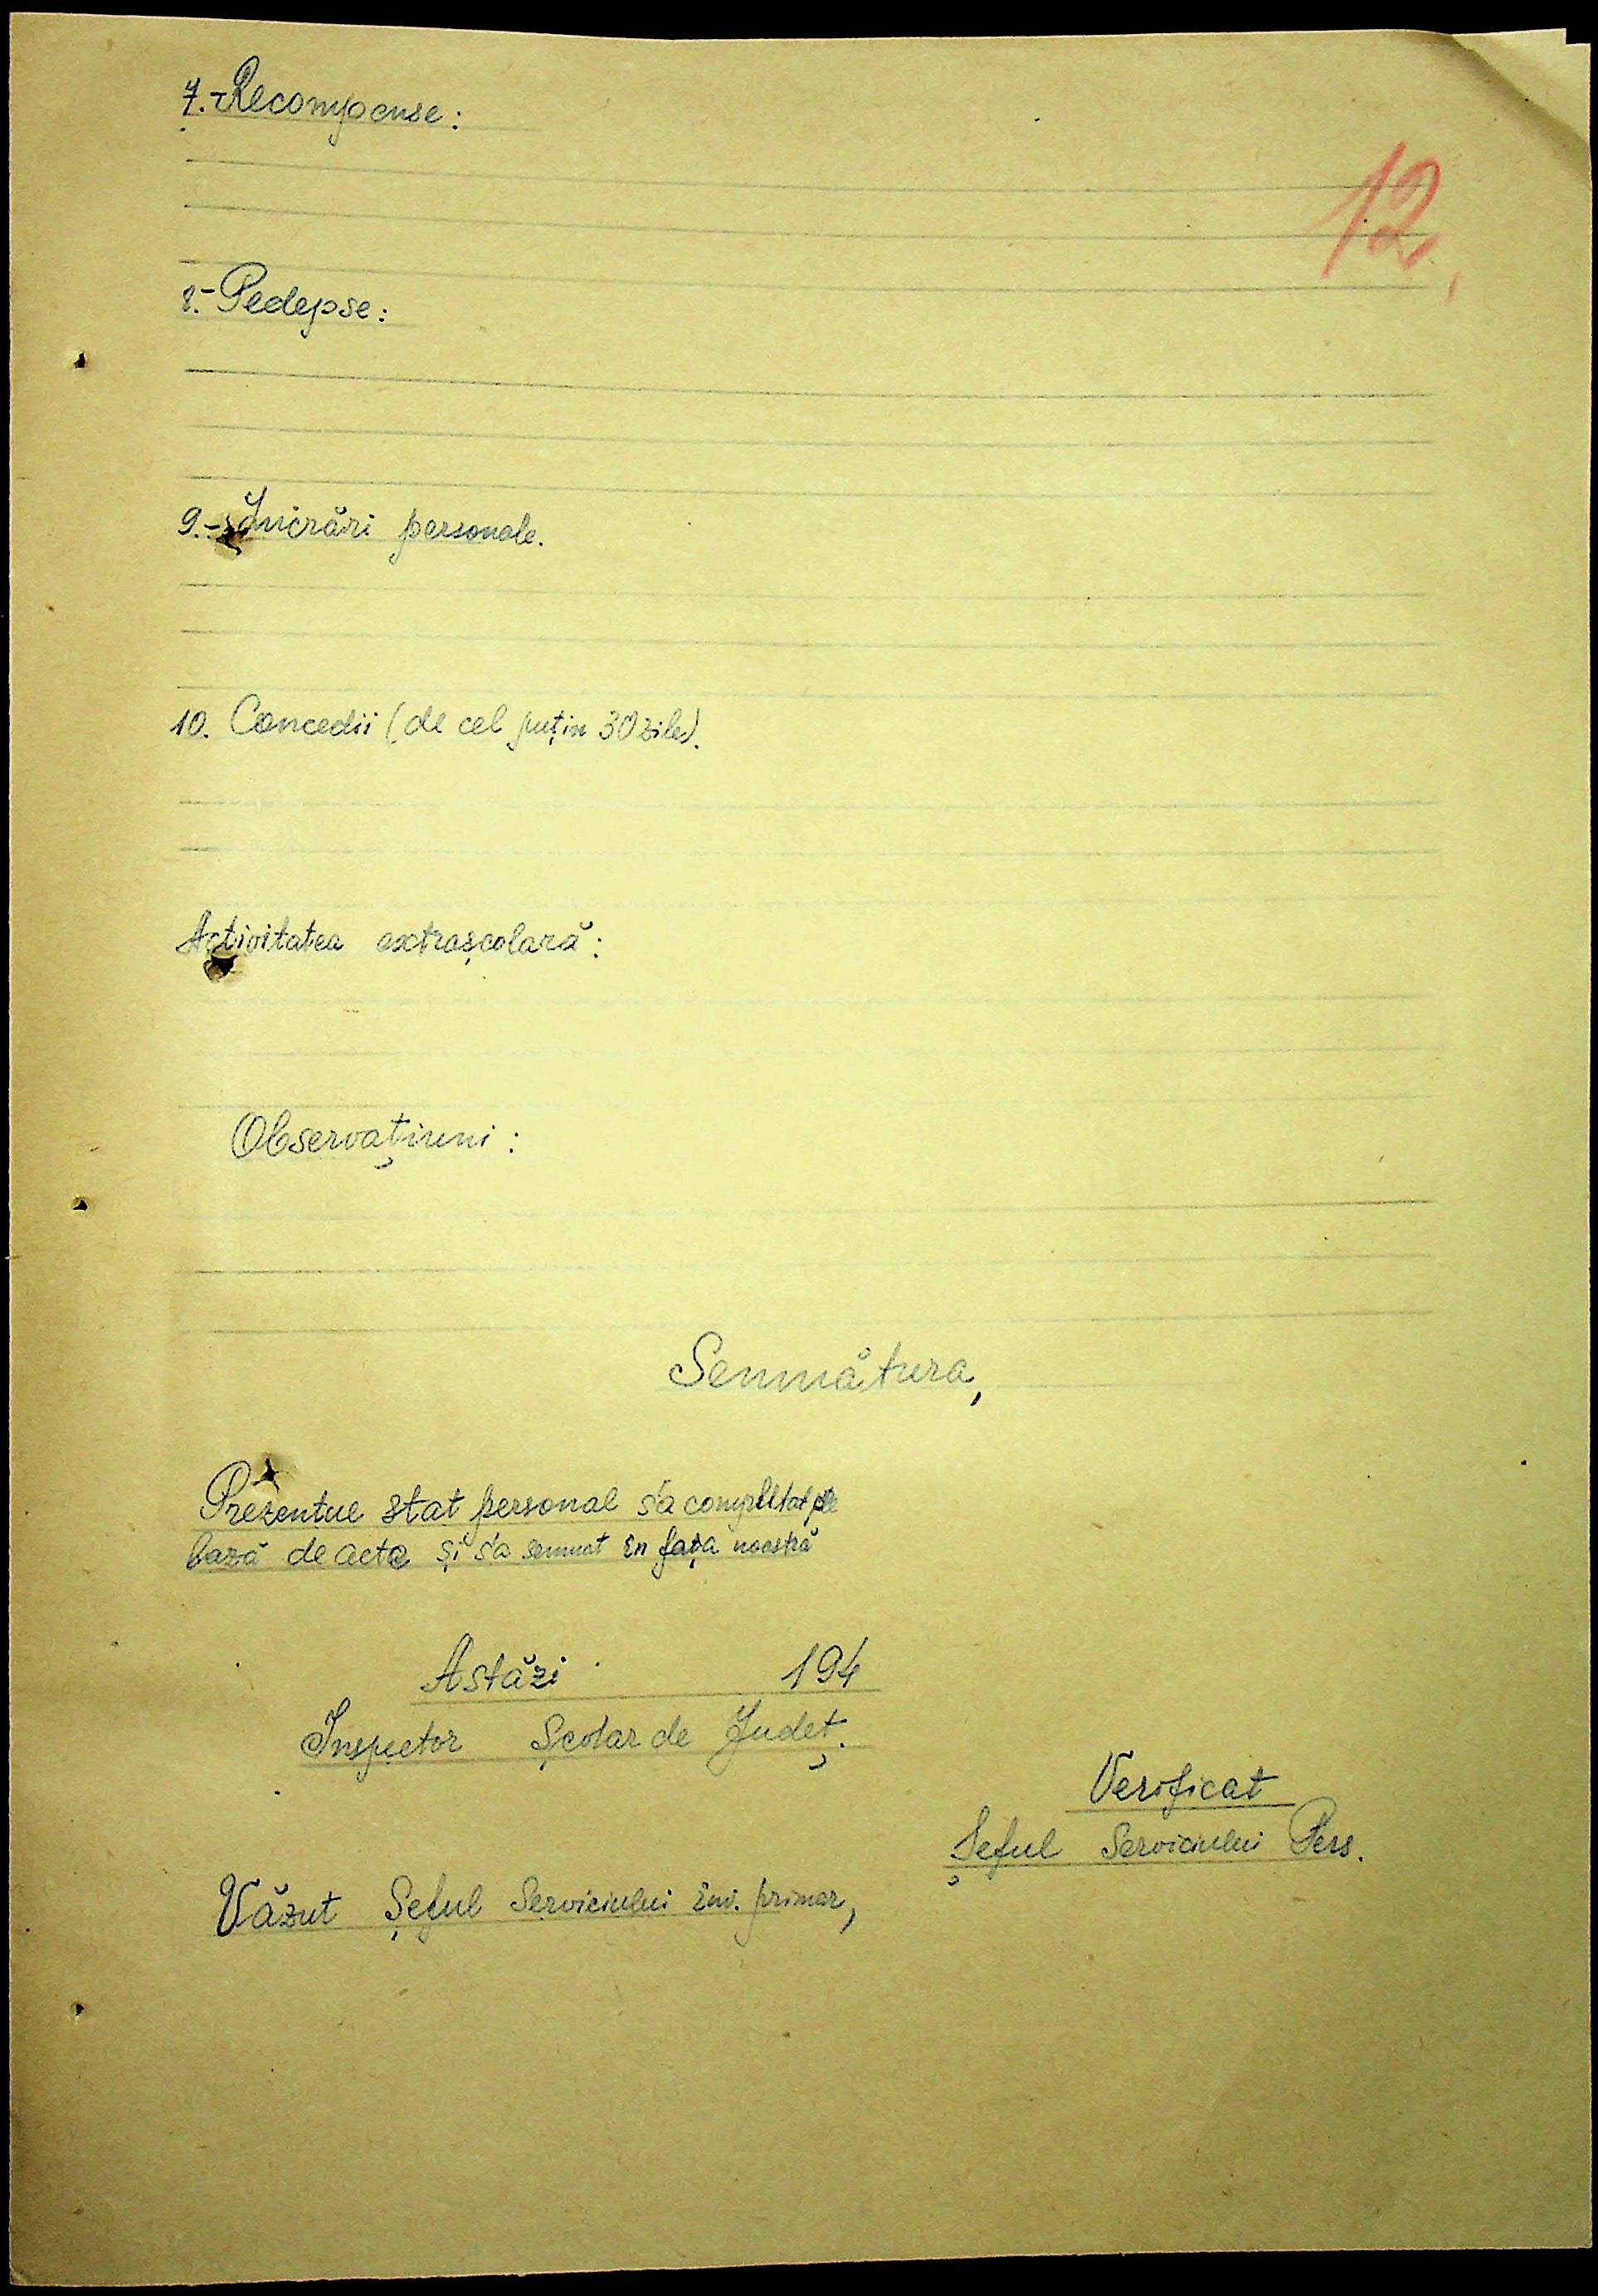 7.- Recompense:
12
8.- Pedepse:
9.- Lucrări personale.
10. Concedii (de cel puțin 30 zile).
Activitatea extrașcolară:
Observațiuni:
Semnătura,
Prezentul stat personal s'a completat pe
bază de acte și s'a semnat în fața noastră
Astăzi 194
Inspector Școlar de Județ.
Verificat
Șeful Serviciului Pers.
Văzut Șeful Serviciului înv. primar,